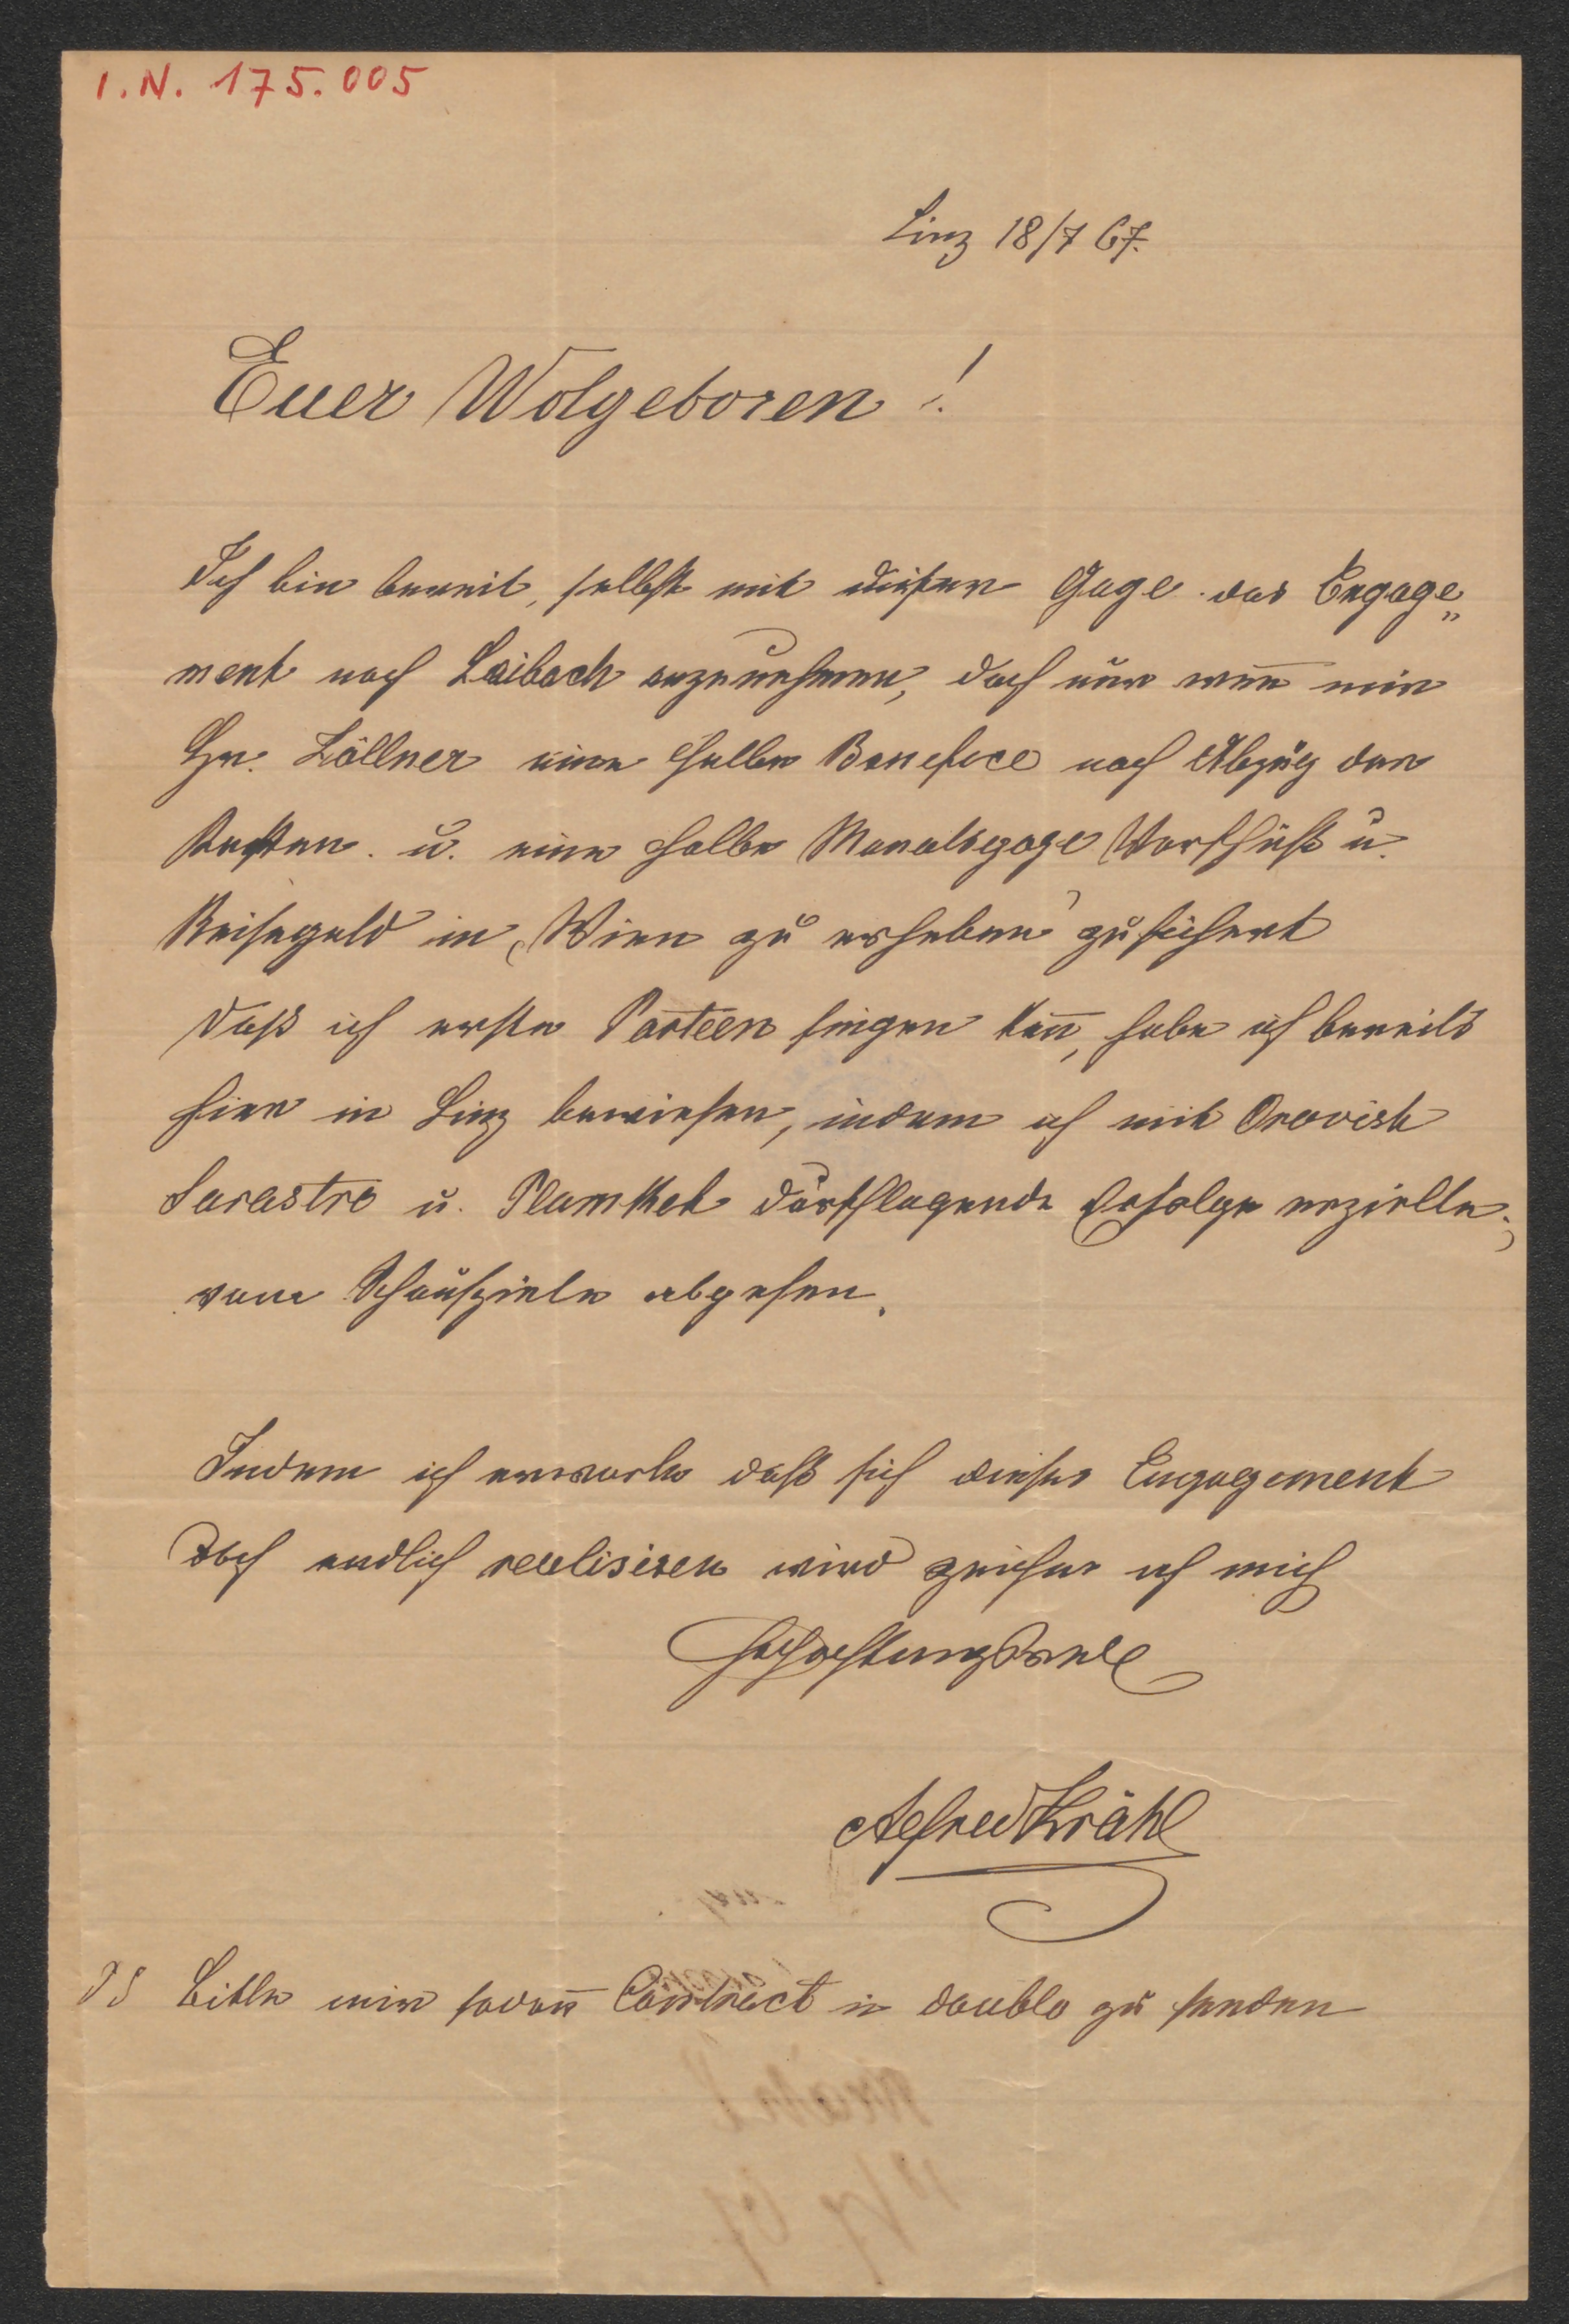 I.N. 175.005
Linz 18/7 67.
Euer Wolgeboren!
Ich bin bereit, selbst mit dieser Gage das Engage„
ment nach Laibach anzunehmen, doch nur wen̄ mir
Hr. Zöllner eine halbe Benefice nach Abzug der
Kosten u. eine halbe Monatsgage Vorschuß u.
Reisegeld in Wien zu erheben zusichert
Daß ich erste Parteen singen kan̄, habe ich bereits
hier in Linz bewiesen, indem ich mit Orovist
Sarastro u. Plumket durchschlagende Erfolge erzielte;
vom Schauspiele abgesehen.
Indem ich erwarte daß sich dieses Engagement
doch endlich realisiren wird zeichne ich mich
Hochachtungsvoll
Alfred Krähl
PS Bitte mir sodan̄ Contract in doublo zu senden